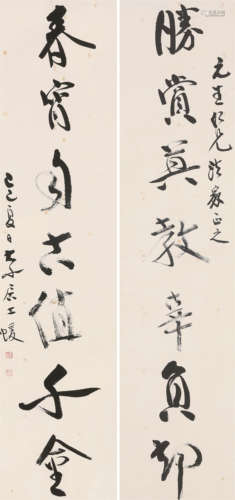 元生仁兄法家正之
勝賞莫教辜負卻
春宵自古值千金
己巳夏日